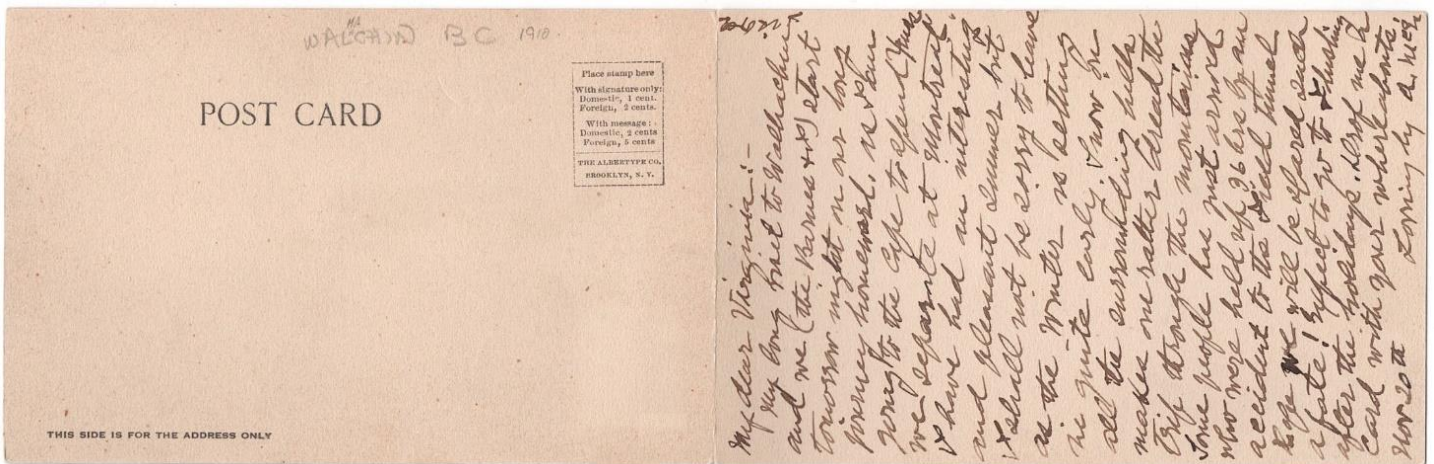 WALCAHN BC 1910.
MA
POST CARD
Place stamp here
With signature only:
Domestic, 1 cent.
Foreign, 2 cents.
With message:
Domestic, 2 cents
Foreign, 5 cents
THE ALBERTYPE CO.
BROOKLYN, N. Y.
THIS SIDE IS FOR THE ADDRESS ONLY
My dear Virginia:-
My long visit to Walhachin
and we (the Barnes & I) start
tomorrow night on our long
journey homeward, as I am
going to the Cape to spend
we separate at Montreal.
I have had an interesting
and pleasant summer but
I shall not be sorry to leave
as the winter is setting
in quite early. Snow on
all the surrounding hills
makes one rather dread the
trip through the mountains
some people has just arrived
who were held up 36 hrs by an
accident to the
hope we will be spared such
a fate! Expect to go to Flushing
after the holidays. Drop me a
card with your whereabouts.
Nov 20th Lovingly